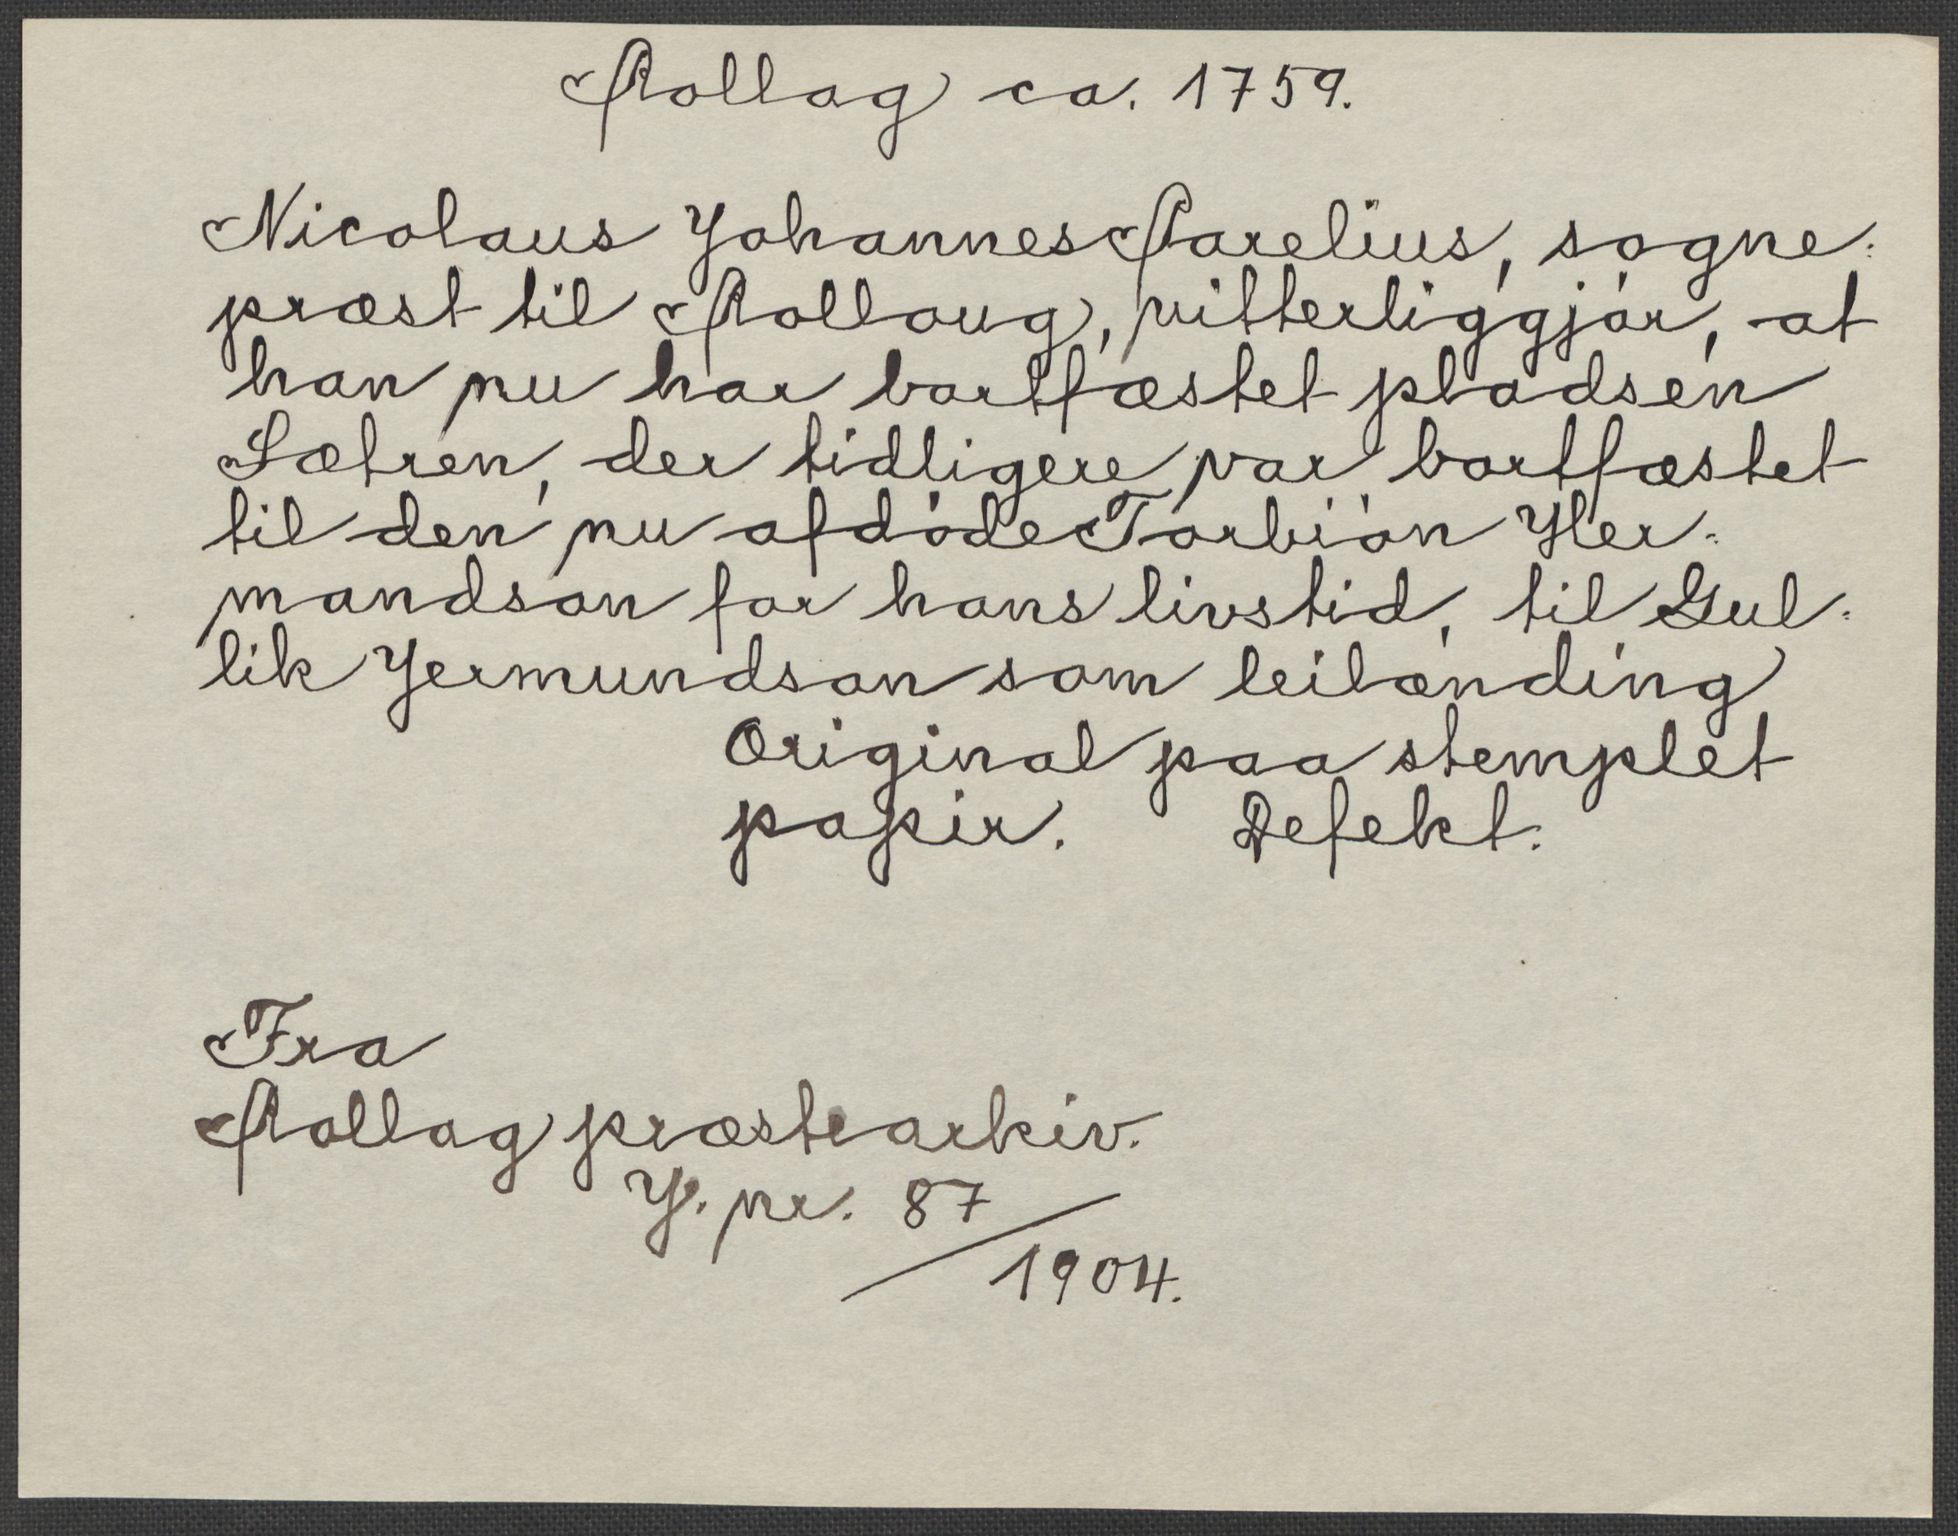 Rollag ca. 1759.
Nicolaus Johannes Parelius, sogne-
præst til Rollaug, vitterliggjör, at
han nu har bortfæstet pladsen
Sætren, der tidligere var bortfæstet
til den nu afdöde Torbiön Her-
mandson for hans livstid, til Gul-
lik Jermundson som leilænding
Original paa stemplet
papir. Defekt.
Fra
Rollag præstearkiv.
J. nr. 87/1904.